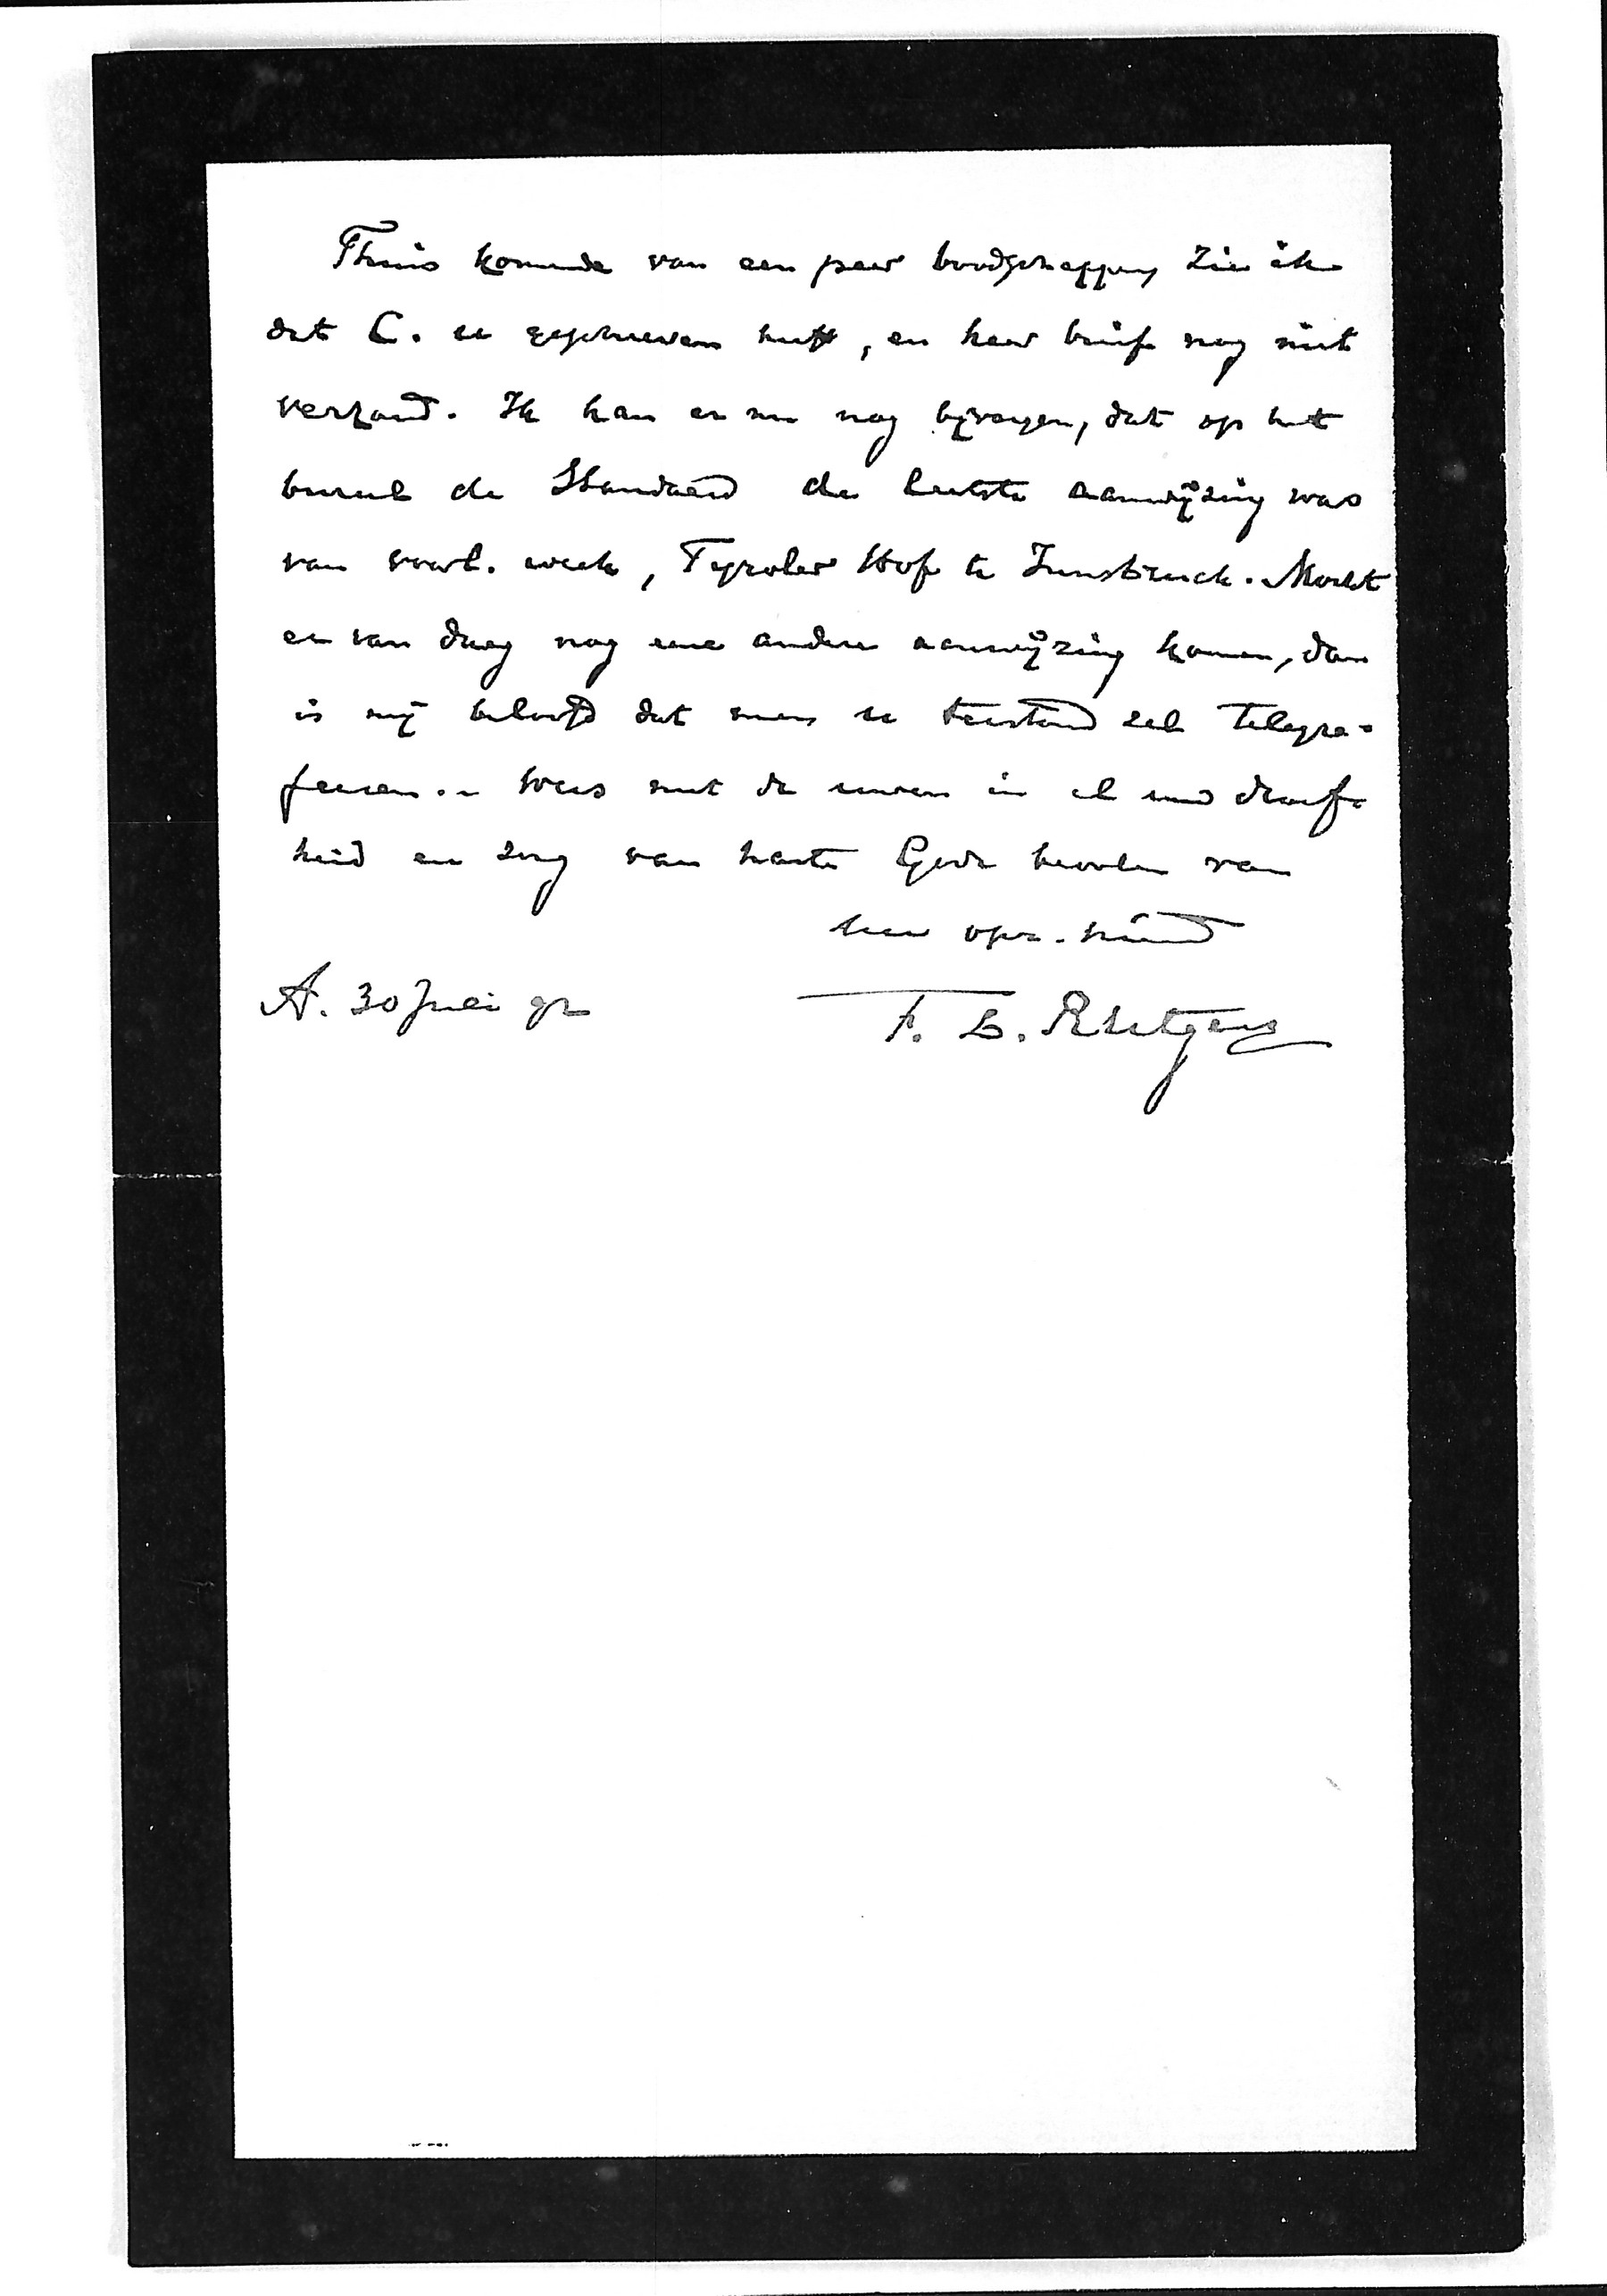 Thuis komende van een paar boodschappen, zie ik
dat C. u geschreven heeft, en haar brief nog niet
verzond. Ik kan er nu nog bijvoegen, dat op het
bureel de Standaard de laatste aanwijzing was
van voorl. week, Tyroler Hof te Innsbruck. Mocht
er van daag nog eene andere aanwijzing komen, dan
is mij beloofd dat men u terstond zal telegra-
feeren. Wees met de uwen in al uwe droef-
heid en zorg van harte Gode bevolen van
Uw opr. vriend
A. 30 Juli 92
F. L. Rutgers